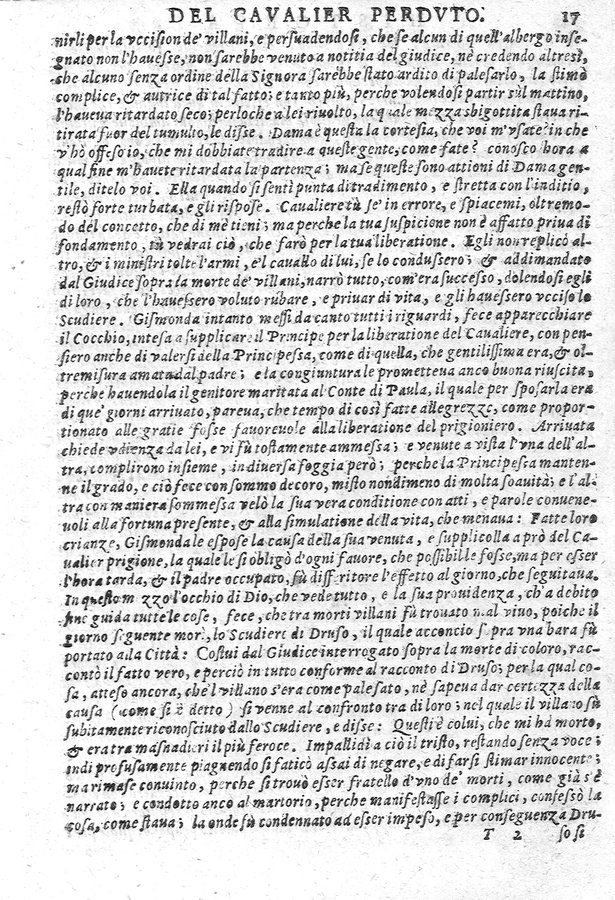 DEL CAVALIER PERDVTO. 17
nirli per la vccision de' villani, e persuadendosi, che se alcun di quell'albergo inse-
gnato non l'hauesse, non sarebbe venuto a notitia del giudice, nè credendo altresì,
che alcuno senza ordine della Signora sarebbe stato ardito di palesarlo, la stimò
complice, & autrice di tal fatto; e tanto più, perche volendosi partir sul mattino,
l'haueua ritardato seco; perloche a lei riuolto, la quale mezza sbigottita staua ri-
tirata fuor del tumulto, le disse. Dama è questa la cortesia, che voi m'vsate? in che
v'hò offeso io, che mi dobbiate tradire a queste gente, come fate? conosco hora a
qual fine m'hauete ritardata la partenza; ma se queste sono attioni di Dama gen-
tile, ditelo voi. Ella quando si sentì punta di tradimento, e stretta con l'inditio,
restò forte turbata, e gli rispose. Caualiere tù se' in errore, e spiacemi, oltremo-
do del concetto, che di me tieni; ma perche la tua suspicione non è affatto priua di
fondamento, tù vedrai ciò, che farò per la tua liberatione. Egli non replicò al-
tro, & i ministri tolte l'armi, e'l cauallo di lui, se lo condussero; & addimandato
dal Giudice sopra la morte de' villani, narrò tutto, com'era successo, dolendosi egli
di loro, che l'hauessero voluto rubare, e priuar di vita, e gli hauessero vcciso lo
Scudiere. Gismonda intanto messi da canto tutti i riguardi, fece apparecchiare
il Cocchio, intesa a supplicare il Principe per la liberatione del Caualiere, con pen-
siero anche di valersi della Principessa, come di quella, che gentilissima era, & ol-
tremisura amata dal padre; e la congiuntura le prometteua anco buona riuscita,
perche hauendola il genitore maritata al Conte di Paula, il quale per sposarla era
di que' giorni arriuato, pareua, che tempo di così fatte allegrezze, come propor-
tionato alle gratie fosse fauoreuole alla liberatione del prigioniero. Arriuata
chiede vdienza da lei, e vi fù tostamente ammessa; e venute a vista l'vna dell'al-
tra, complirono insieme, in diuersa foggia però; perche la Principessa manten-
ne il grado, e ciò fece con sommo decoro, misto nondimeno di molta soauità; e l'al-
tra con maniera sommessa velò la sua vera conditione con atti, e parole conuene-
uoli alla fortuna presente, & alla simulatione della vita, che menaua: Fatte loro
crianze, Gismonda le espose la causa della sua venuta, e supplicolla a prò del Ca-
ualier prigione, la quale le si obligò d'ogni fauore, che possibil le fosse, ma per esser
l'hora tarda, & il padre occupato, fù differitore l'effetto al giorno, che seguitaua.
In questo m zzo l'occhio di Dio, che vede tutto, e la sua prouidenza, ch'a debito
fine guida tutte le cose, fece, che tra morti villani fù trouato mal viuo, poiche il
giorno seguente mori, lo Scudiere di Druso, il quale acconcio sopra vna bara fù
portato alla Città: Costui dal Giudice interrogato sopra la morte di coloro, rac-
contò il fatto vero, e perciò in tutto conforme al racconto di Druso; per la qual co-
sa, atteso ancora, che'l villano s'era come palesato, nè sapeua dar certezza della
causa (come si è detto) si venne al confronto tra di loro; nel quale il villano fù
subitamente riconosciuto dallo Scudiere, e disse: Questi è colui, che mi hà morto,
& era tra masnadieri il più feroce. Impallidì a ciò il tristo, restando senza voce;
indi profusamente piagnendo si faticò assai di negare, e di farsi stimar innocente;
ma rimase conuinto, perche si trouò esser fratello d'vno de' morti, come già s'è
narrato; e condotto anco al martorio, perche manifestasse i complici, confessò la
cosa, come staua; la onde fù condennato ad esser impeso, e per conseguenza Dru-
T 2 so si